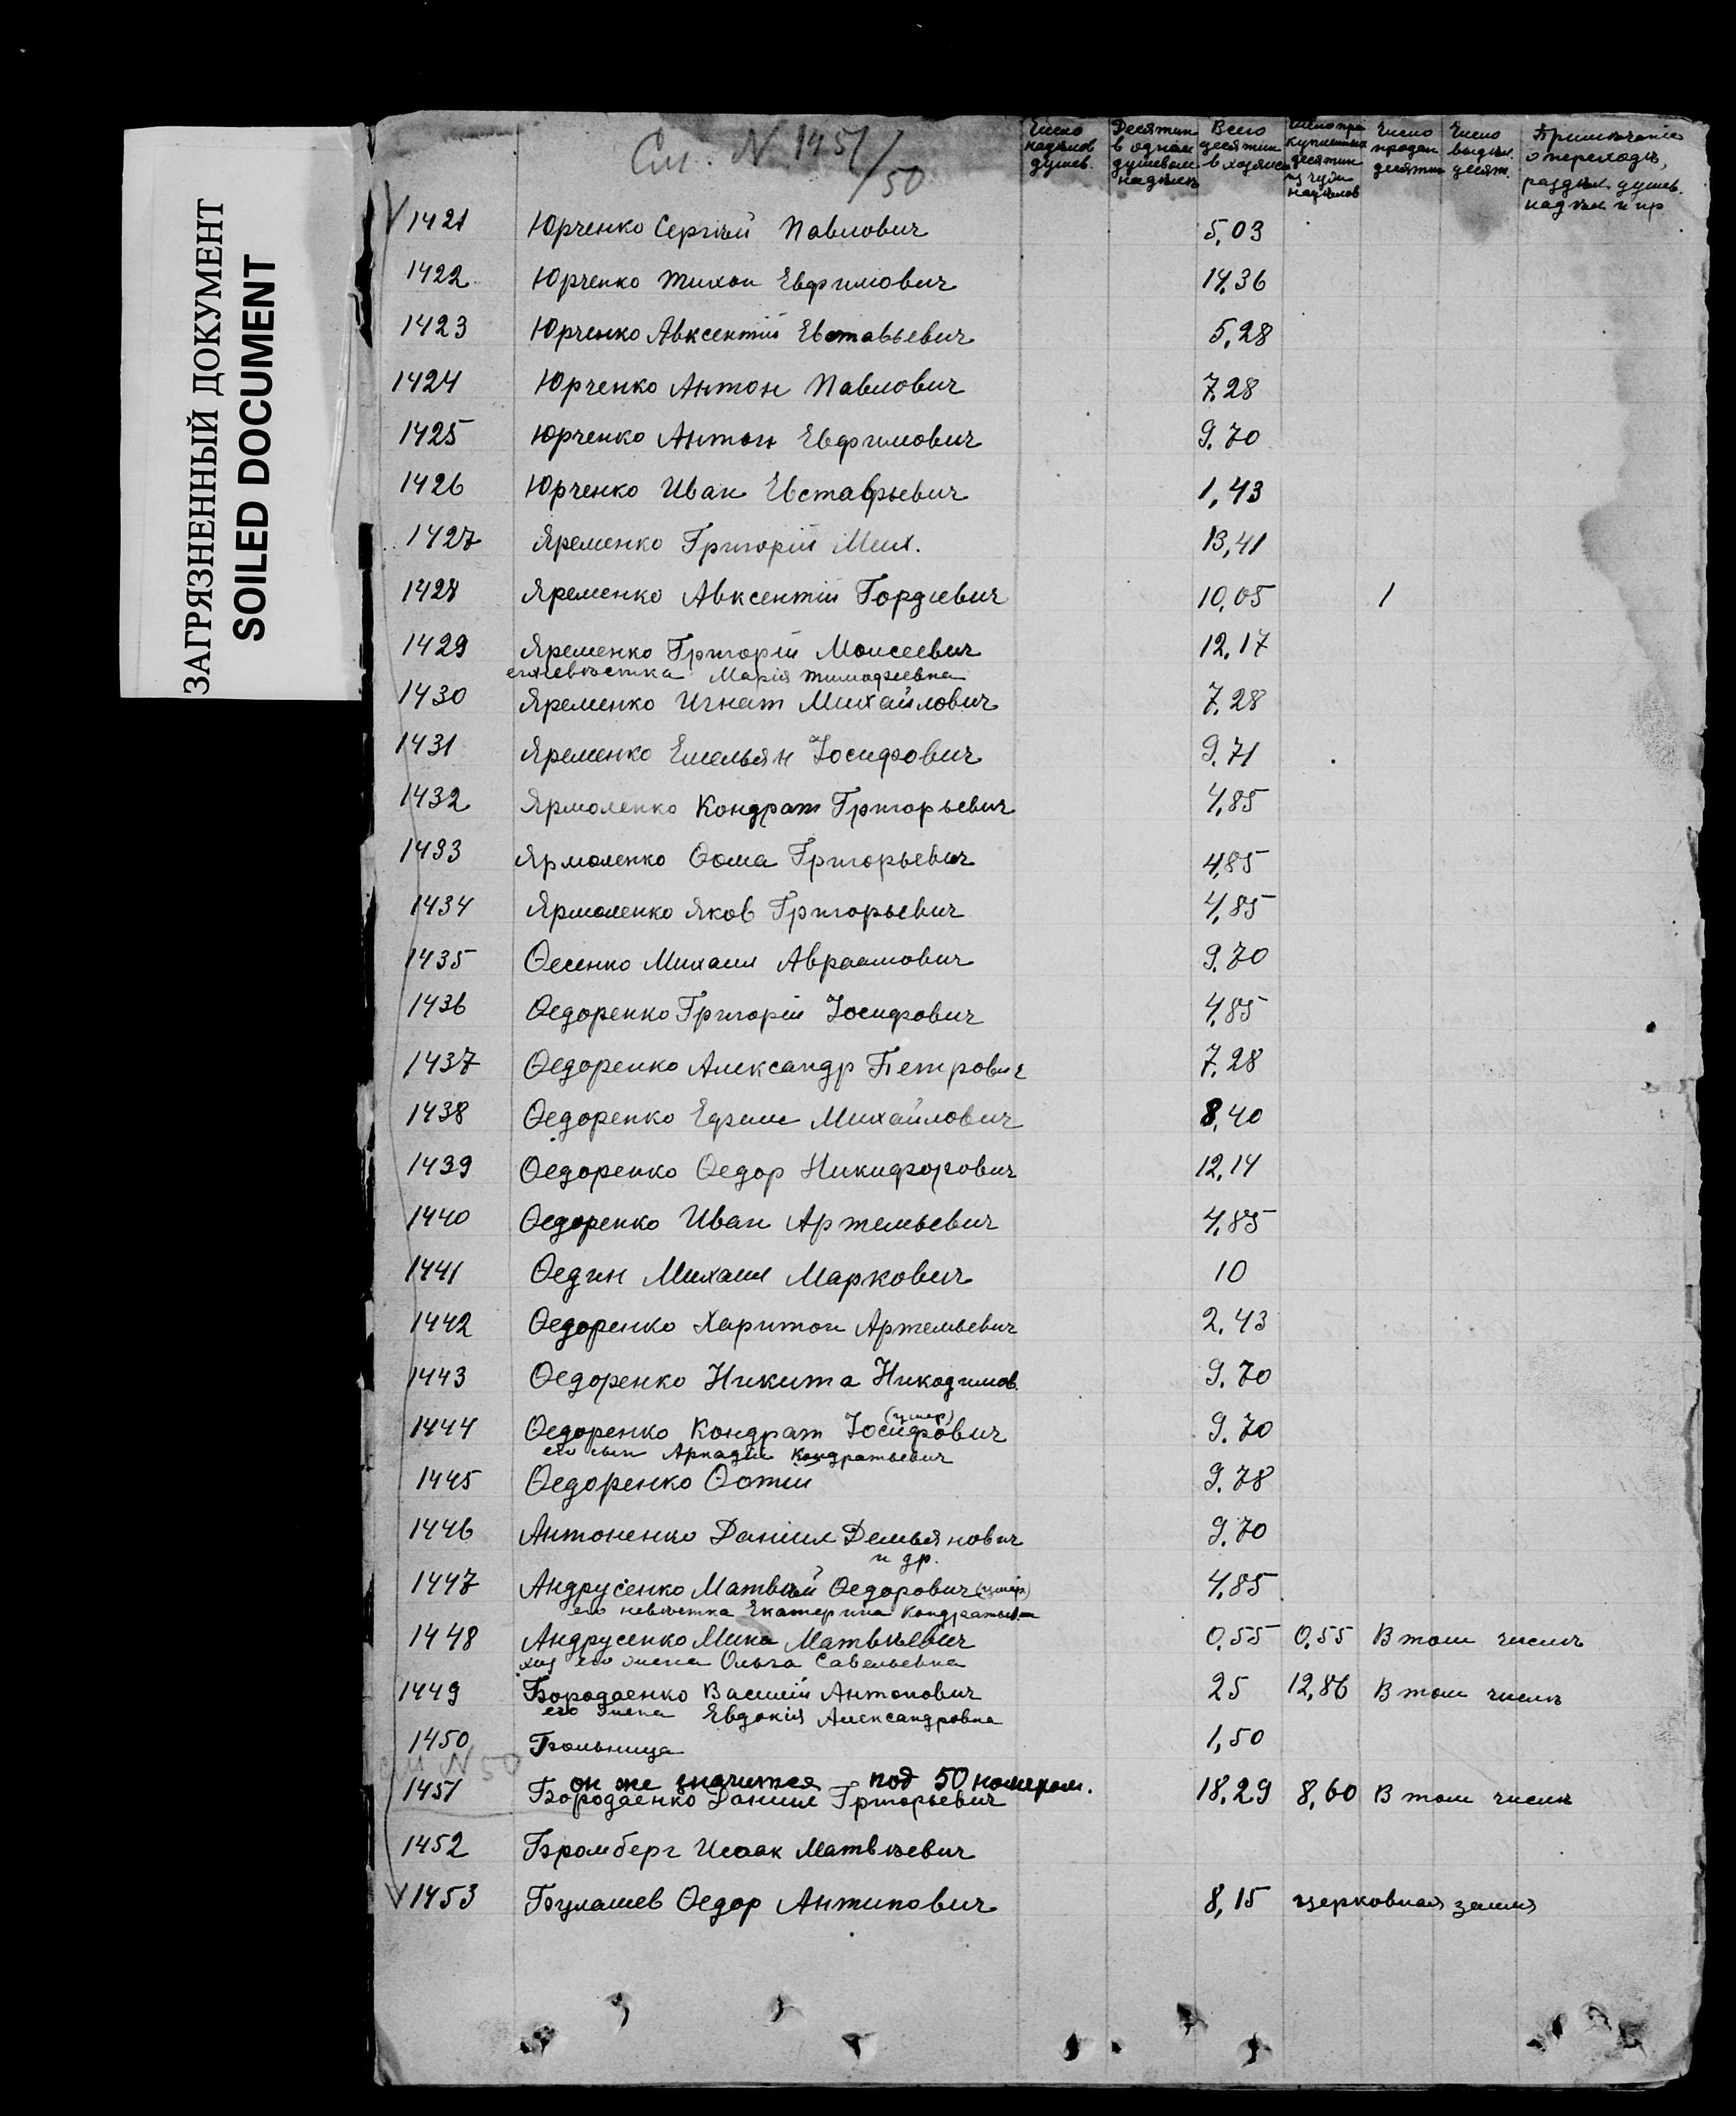 ЗАГРЯЗНЕННЫЙ ДОКУМЕНТ
SOILED DOCUMENT
См. N 1451/50
Число надѣлов душев.
Десятин в одном душевом надѣлѣ
Всего десятин в хозяйс
купленных десятин из чужи надѣлов
Число продан десятин
Число выдѣл. десят.
Примѣчаніе о переходѣ, раздѣл. душев. надѣл и пр
1421 Юрченко Сергѣй Павлович 5,03
1422 Юрченко Тихон Евфимович 14,36
1423 Юрченко Авксентій Евставьевич 5,28
1424 Юрченко Антон Павлович 7,28
1425 Юрченко Антон Евфимович 9,70
1426 Юрченко Иван Евстафьевич 1,43
1427 Яременко Григорій Мих. 13,41
1428 Яременко Авксентій Гордіевич 10,05 1
1429 Яременко Григорій Моисеевич 12,17
его невѣстка Марія Тимофеевна
1430 Яременко Игнат Михайлович 7,28
1431 Яременко Емельян Іосифович 9,71
1432 Ярмоленко Кондрат Григорьевич 4,85
1433 Ярмоленко Ѳома Григорьевич 4,85
1434 Ярмоленко Яков Григорьевич 4,85
1435 Ѳесенко Михаил Авраамович 9,70
1436 Ѳедоренко Григорій Іосифович 4,85
1437 Ѳедоренко Александр Петрович 7,28
1438 Ѳедоренко Ефим Михайлович 8,40
1439 Ѳедоренко Ѳедор Никифорович 12,14
1440 Ѳедоренко Иван Артемьевич 4,85
1441 Ѳедин Михаил Маркович 10
1442 Ѳедоренко Харитон Артемьевич 2,43
1443 Ѳедоренко Никита Никодимов. 9,70
1444 Ѳедоренко Кондрат Іосифович (умер) 9,70
его сын Аркадій Кондратьевич
1445 Ѳедоренко Ѳотій 9,78
1446 Антоненко Даниил Демьянович 9,70
и др.
1447 Андрусенко Матвѣй Ѳедорович (умер) 4,85
его невѣстка Екатерина Кондратьевн
1448 Андрусенко Мина Матвѣевич 0,55 0,55 В том числѣ
его жена Ольга Савельевна
1449 Бородаенко Василій Антонович 25 12,86 В том числѣ
его жена Евдокія Александровна
1450 Больница 1,50
см N 50
он же значится под 50 номером.
1451 Бородаенко Даниил Григорьевич 18,29 8,60 В том числѣ
1452 Бромберг Исаак Матвѣевич
1453 Булашев Ѳедор Антипович 8,15 церковная земля